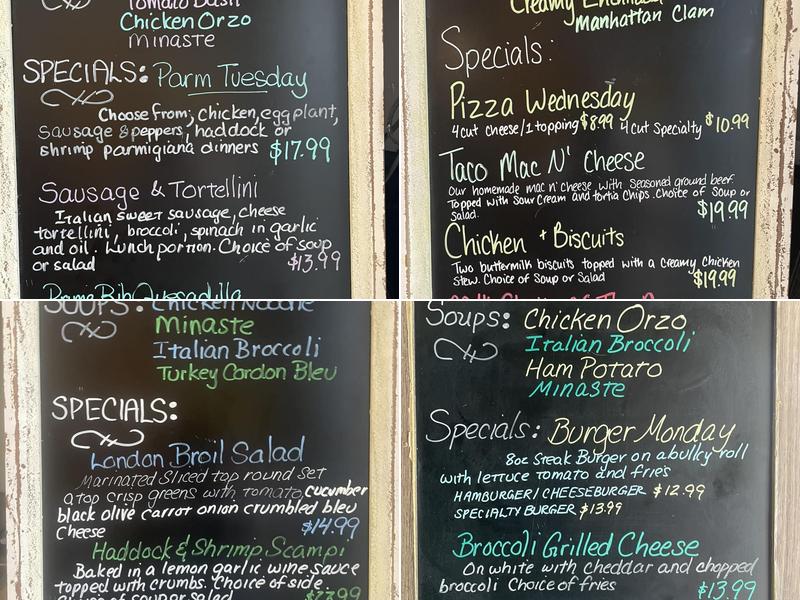 Tomato Basil
Chicken Orzo
Minaste
SPECIALS: Parm Tuesday
Choose from; chicken, eggplant,
sausage & peppers, haddock or
shrimp parmigiana dinners $17.99
Sausage & Tortellini
Italian sweet sausage, cheese
tortellini, broccoli, spinach in garlic
and oil. Lunch portion. Choice of soup
or salad $13.99
Prime Rib Quesadilla
Creamy
Manhattan Clam
Specials:
Pizza Wednesday
4 cut cheese/1 topping $8.99 4 cut Specialty $10.99
Taco Mac N' Cheese
Our homemade mac n' cheese with seasoned ground beef.
Topped with sour cream and tortia chips. Choice of Soup or
Salad. $19.99
Chicken + Biscuits
Two buttermilk biscuits topped with a creamy chicken
stew. Choice of Soup or Salad $19.99
SOUPS: Chicken Noodle
Minaste
Italian Broccoli
Turkey Cordon Bleu
SPECIALS:
London Broil Salad
Marinated Sliced top round set
atop crisp greens with tomato, cucumber
black olive carrot onion crumbled bleu
cheese $14.99
Haddock & Shrimp Scampi
Baked in a lemon garlic wine sauce
topped with crumbs. Choice of side.
Choice of soup or salad
Soups: Chicken Orzo
Italian Broccoli
Ham Potato
Minaste
Specials: Burger Monday
8oz Steak Burger on a bulky roll
with lettuce tomato and fries
HAMBURGER/CHEESEBURGER $12.99
SPECIALTY BURGER $13.99
Broccoli Grilled Cheese
On white with cheddar and chopped
broccoli Choice of fries $13.99